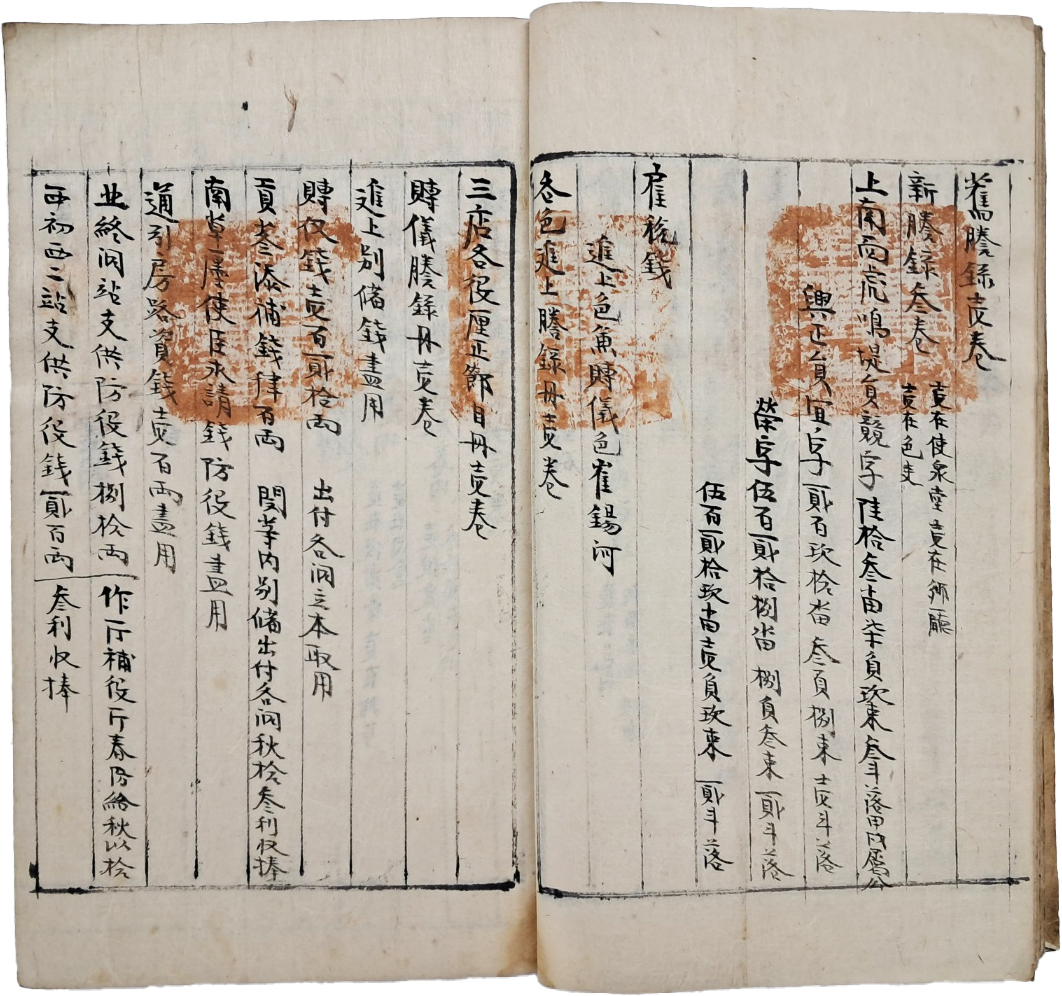 舊謄錄壹卷
新謄錄叄卷 壹在使衆堂 壹在鄕廳
壹在色吏
上南面虎鳴堤員競字陸拾叄畓柒負玖束叄斗落
與正員宜字貳百玖拾畓 叄負捌束 壹斗落
榮字伍百貳拾捌畓 捌負叄束 貳斗落
伍百貳拾玖畓壹負玖束 貳斗落
雇稅錢
進上色魚賻儀色崔錫河
各色進上謄錄冊壹卷
三店各役厘正節目冊壹卷
賻儀謄錄冊壹卷
進上別備錢盡用
賻仪錢壹百貳拾兩 出付各洞立本取用
貢蔘添補錢肆百兩 閔等內別備出付各洞秋捨叄利收捧
南草屢使臣求請錢防役錢盡用
通引房路資錢壹百兩盡用
並終洞站支供防役錢捌拾兩 作厅補役厅春防給秋以捨
再初西二站支供防役錢貳百兩 叄利收捧